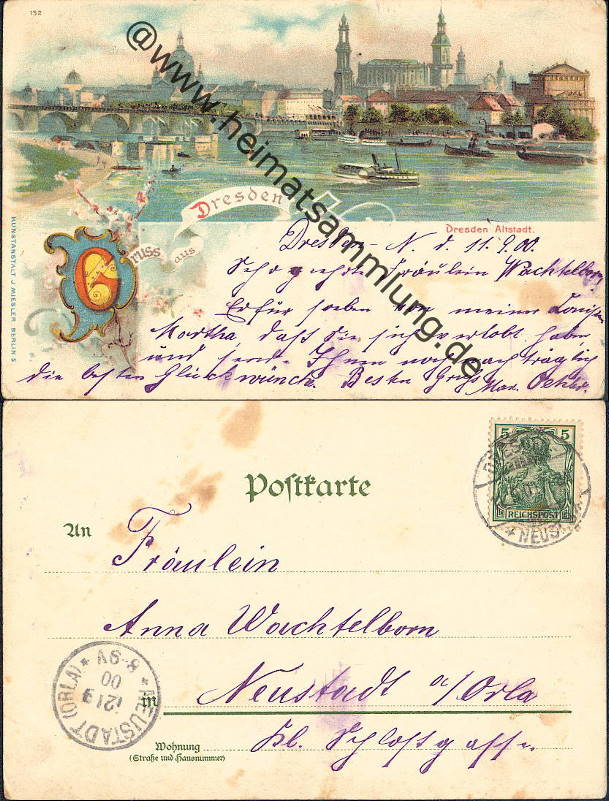 152
@www.heimatsammlung.de
Dresden
Gruss aus
Dresden Altstadt.
KUNSTANSTALT J. MIESLER BERLIN S
Dresden-N. d. 11.9.00.
Sehr geehrtes Fräulein Wachtelborn
Erfuhr soeben von meiner Cousine
Martha, daß Sie sich verlobt haben
und sende Ihnen noch nachträglich
die besten Glückwünsche Besten Gruß Max
Postkarte
5 5
REICHSPOST
NEUST
An Fräulein
Anna Wachtelborn
in Neustadt a/Orla
Kl. Schloßgasse
Wohnung
(Straße und Hausnummer)
NEUSTADT (ORLA)
12/9
00
8-9V